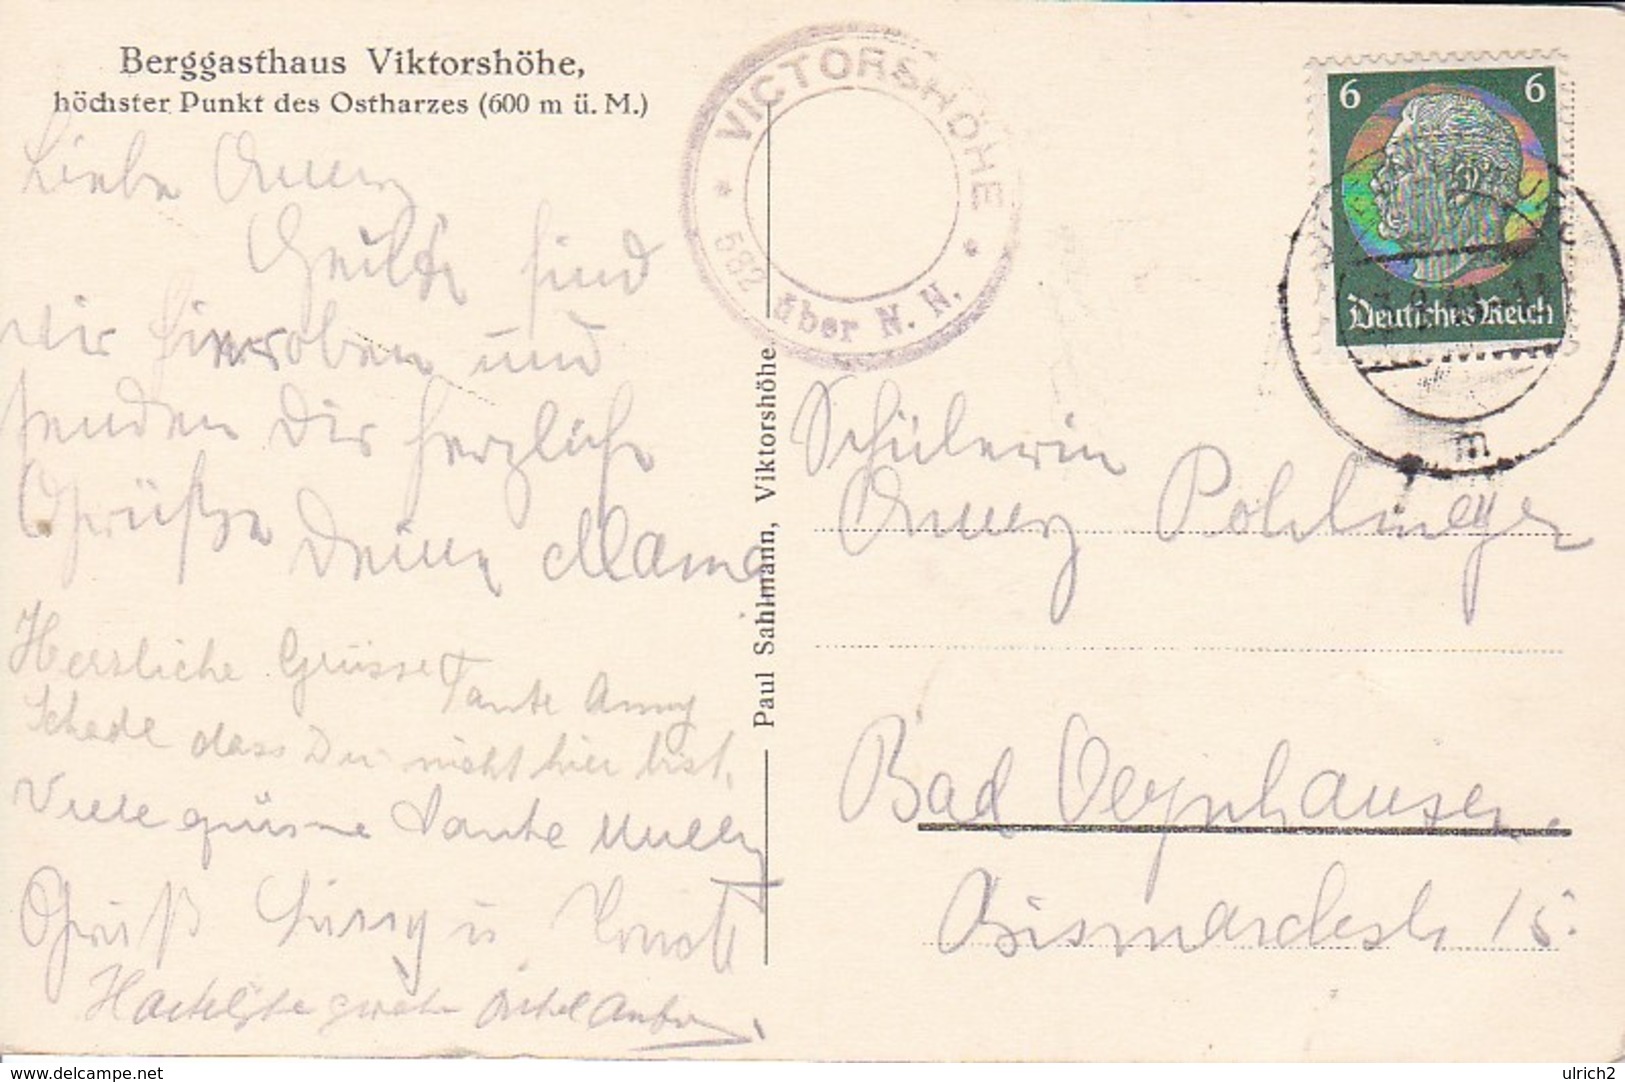 Berggasthaus Viktorshöhe,
höchster Punkt des Ostharzes (600 m ü. M.)
Liebe Anny
Heute sind
wir hier oben und
senden Dir herzliche
Grüße Deine Mama
Herzliche Grüsse Tante Anny
Schade dass Du nicht hier bist.
Viele grüsse Tante Mully
Gruß u.
VICTORSHÖHE
582 über N. N.
Paul Sahlmann, Viktorshöhe
6 6
Deutsches Reich
m
Schülerin
Anny Pohlmeyer
Bad Oeynhausen.
Bismarckstr 15.
delcampe.net
ulrich2